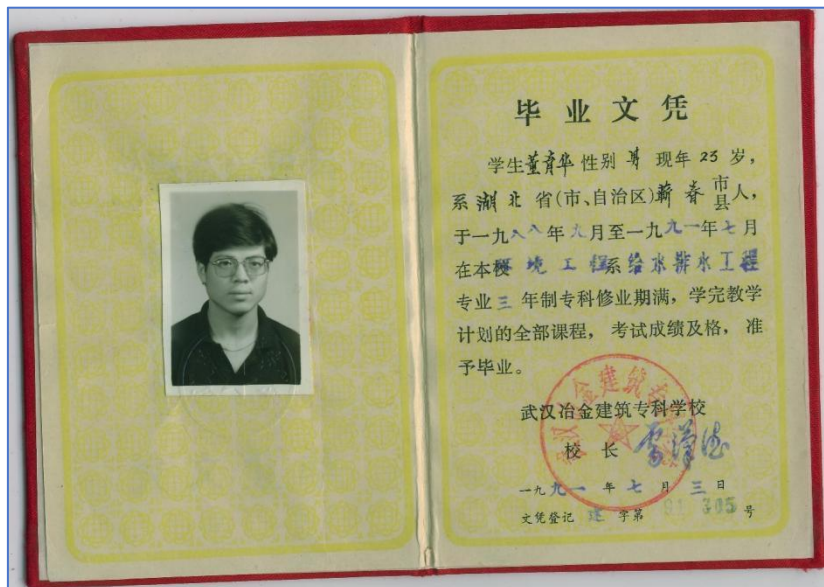 毕业文凭
学生董育华性别 男 现年 23 岁,
系湖北省(市、自治区)蕲春市县人,
于一九八八年九月至一九九一年七月
在本校环境工程系给水排水工程
专业三年制专科修业期满,学完教学
计划的全部课程,考试成绩及格,准
予毕业。
武汉冶金建筑专科学校
校长
一九九一年七月三日
文凭登记 建 字第 91 305 号